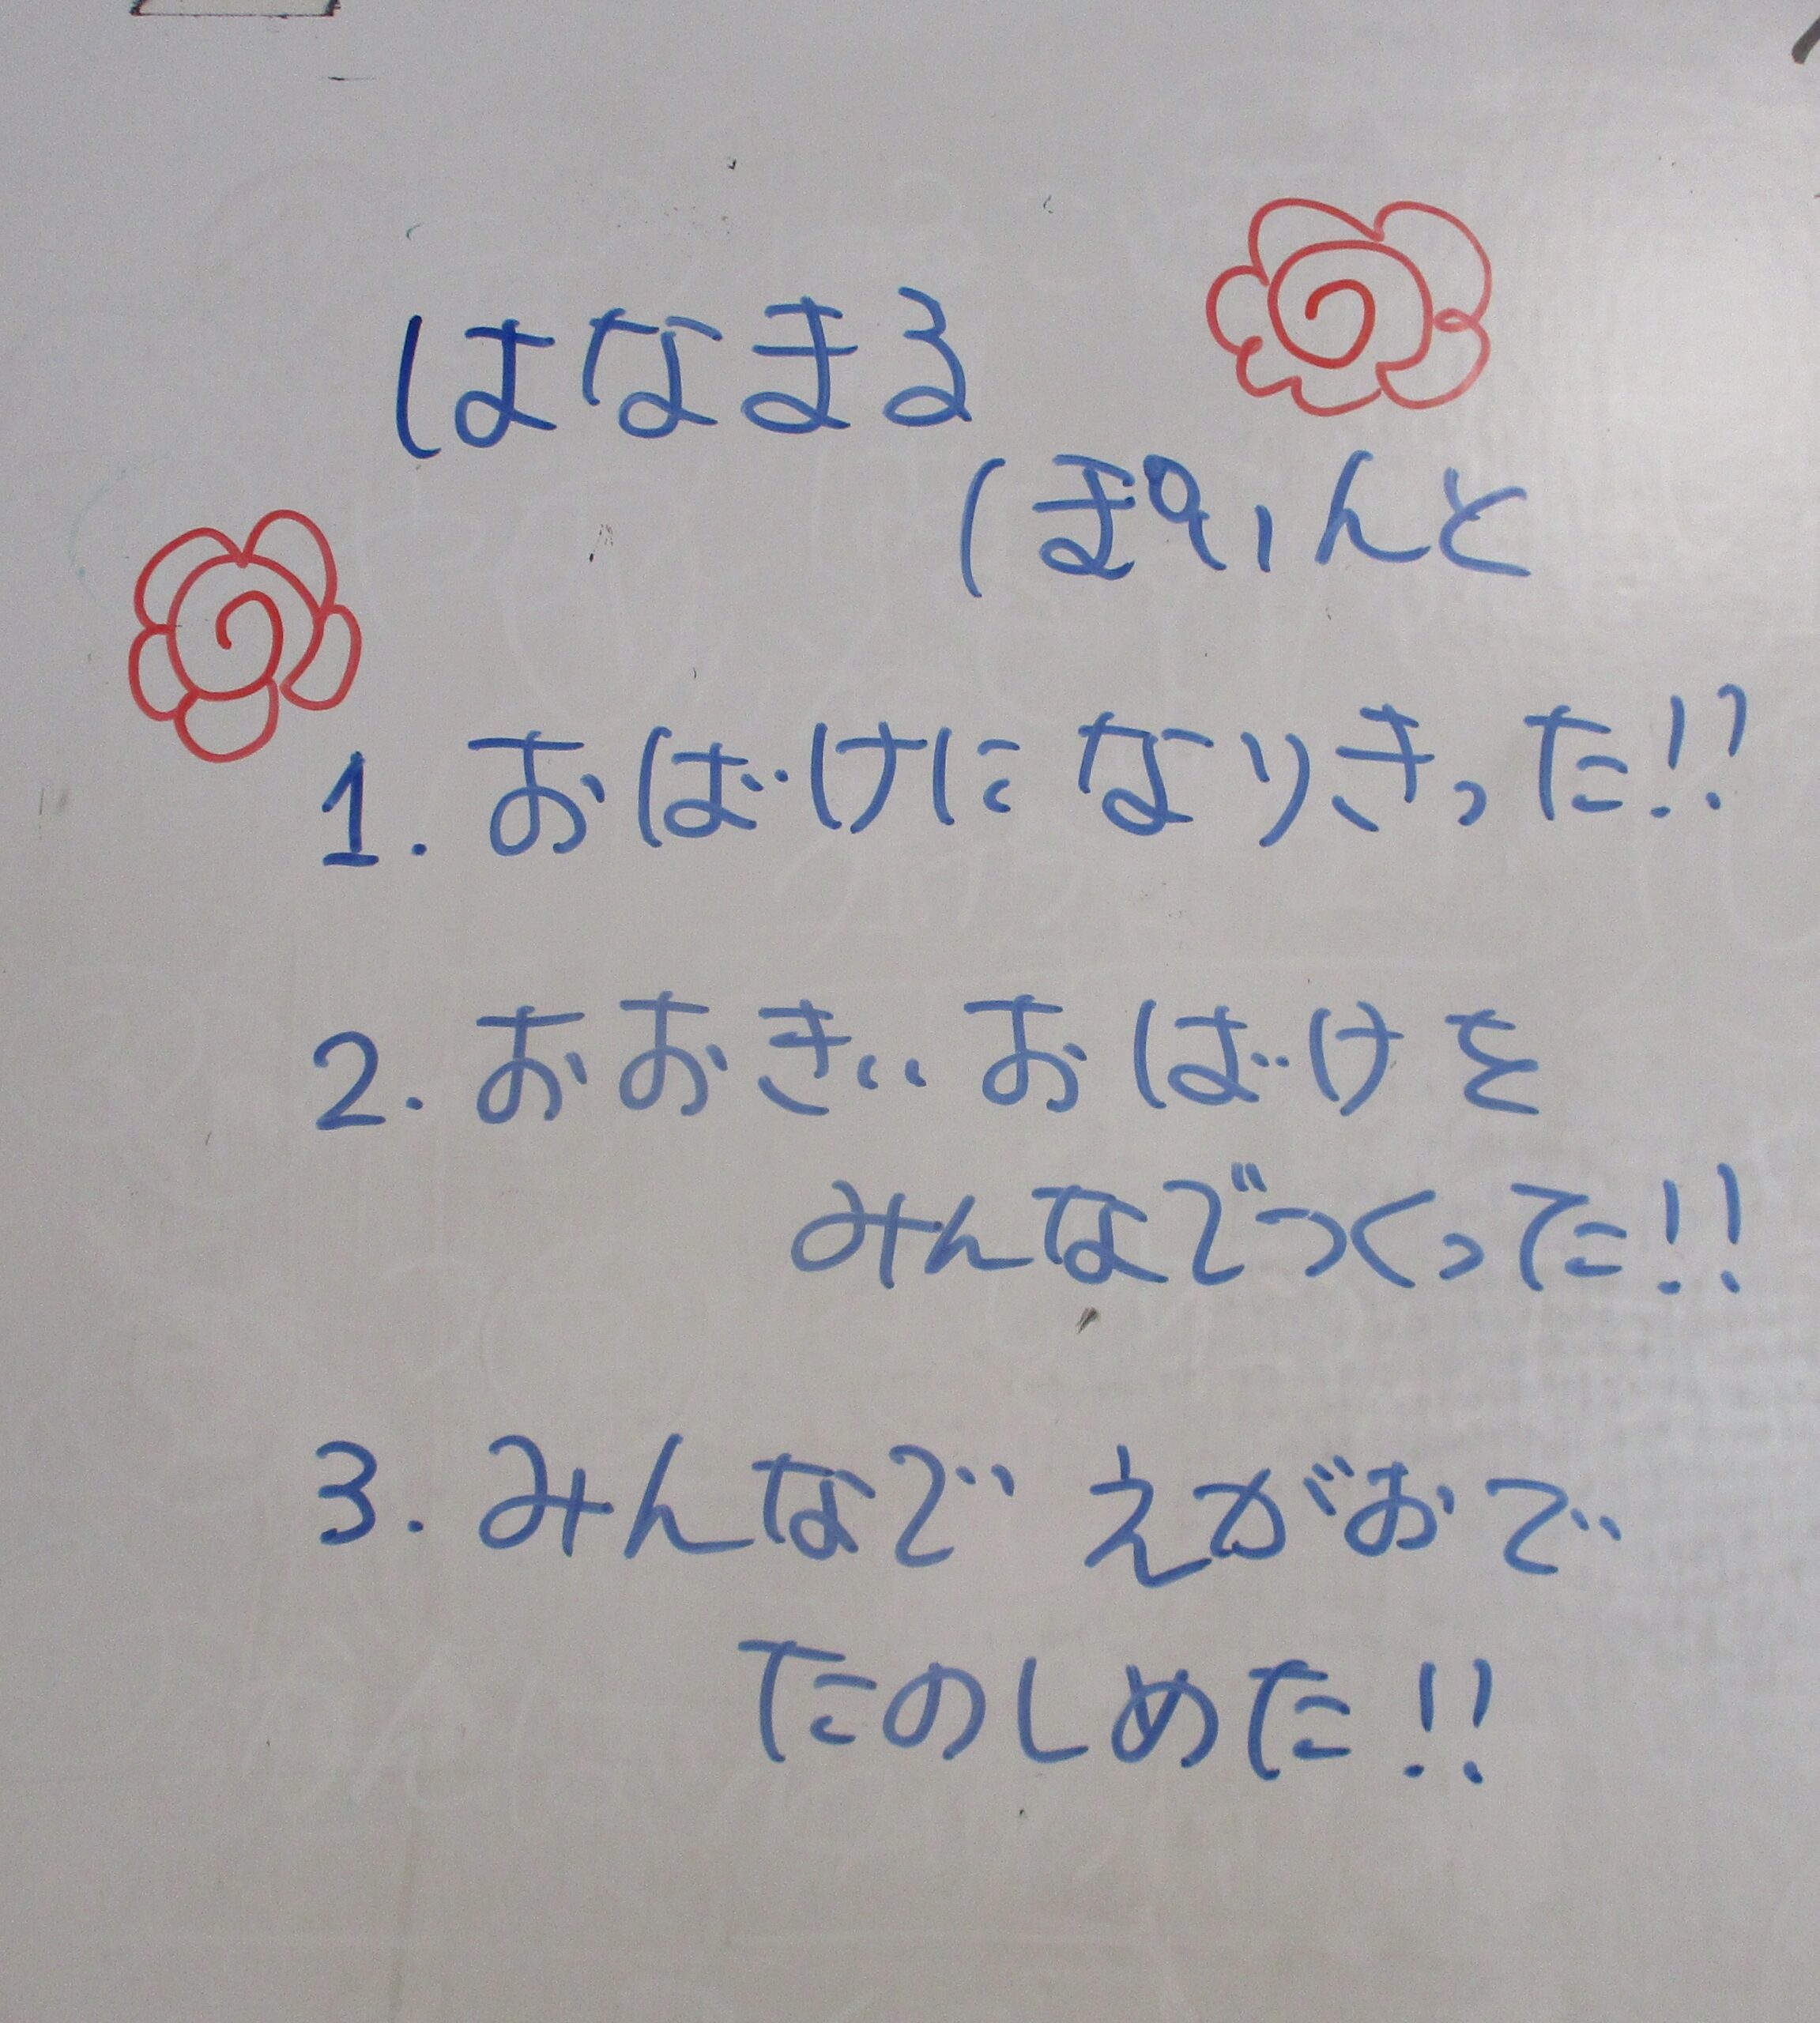 はなまる
ぽいんと
1. おばけになりきった!!
2. おおきいおばけを
みんなでつくった!!
3. みんなで えがおで
たのしめた!!